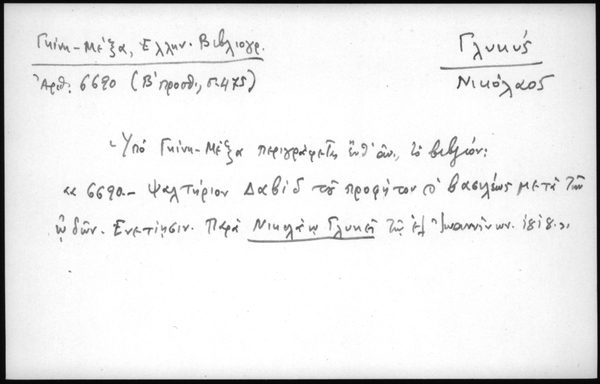 Γκίνη-Μέξα, Ελλην. Βιβλιογρ.
Γλυκύς
Ἀριθ. 6690 (Β' προσθ., σ. 475)
Νικόλαος
Ὑπό Γκίνη-Μέξα περιγράφεται τὸ βιβλίον:
«6690.- Ψαλτήριον Δαβίδ τοῦ προφήτου καὶ βασιλέως μετά τῶν
ᾠδῶν. Ενετίησιν. Παρά Νικολάῳ Γλυκεῖ τῷ ἐξ Ἰωαννίνων. 1818.»